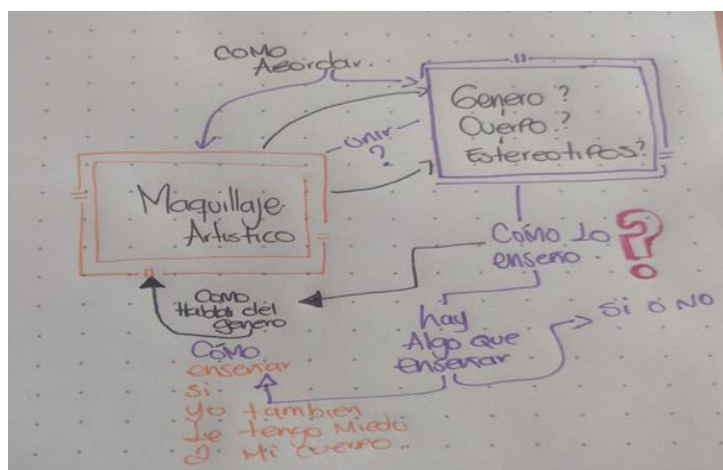 COMO
Abordar..
Genero?
Cuerpo.?
Estereotipos?
unir
?
Maquillaje
Artistico
Cómo Lo
enseño.
?
Como
Hablar del
genero
hay
Algo que
enseñar
Si o NO
Cómo
enseñar
si
yo tambien
Le tengo Miedo
a Mi Cuerpo..